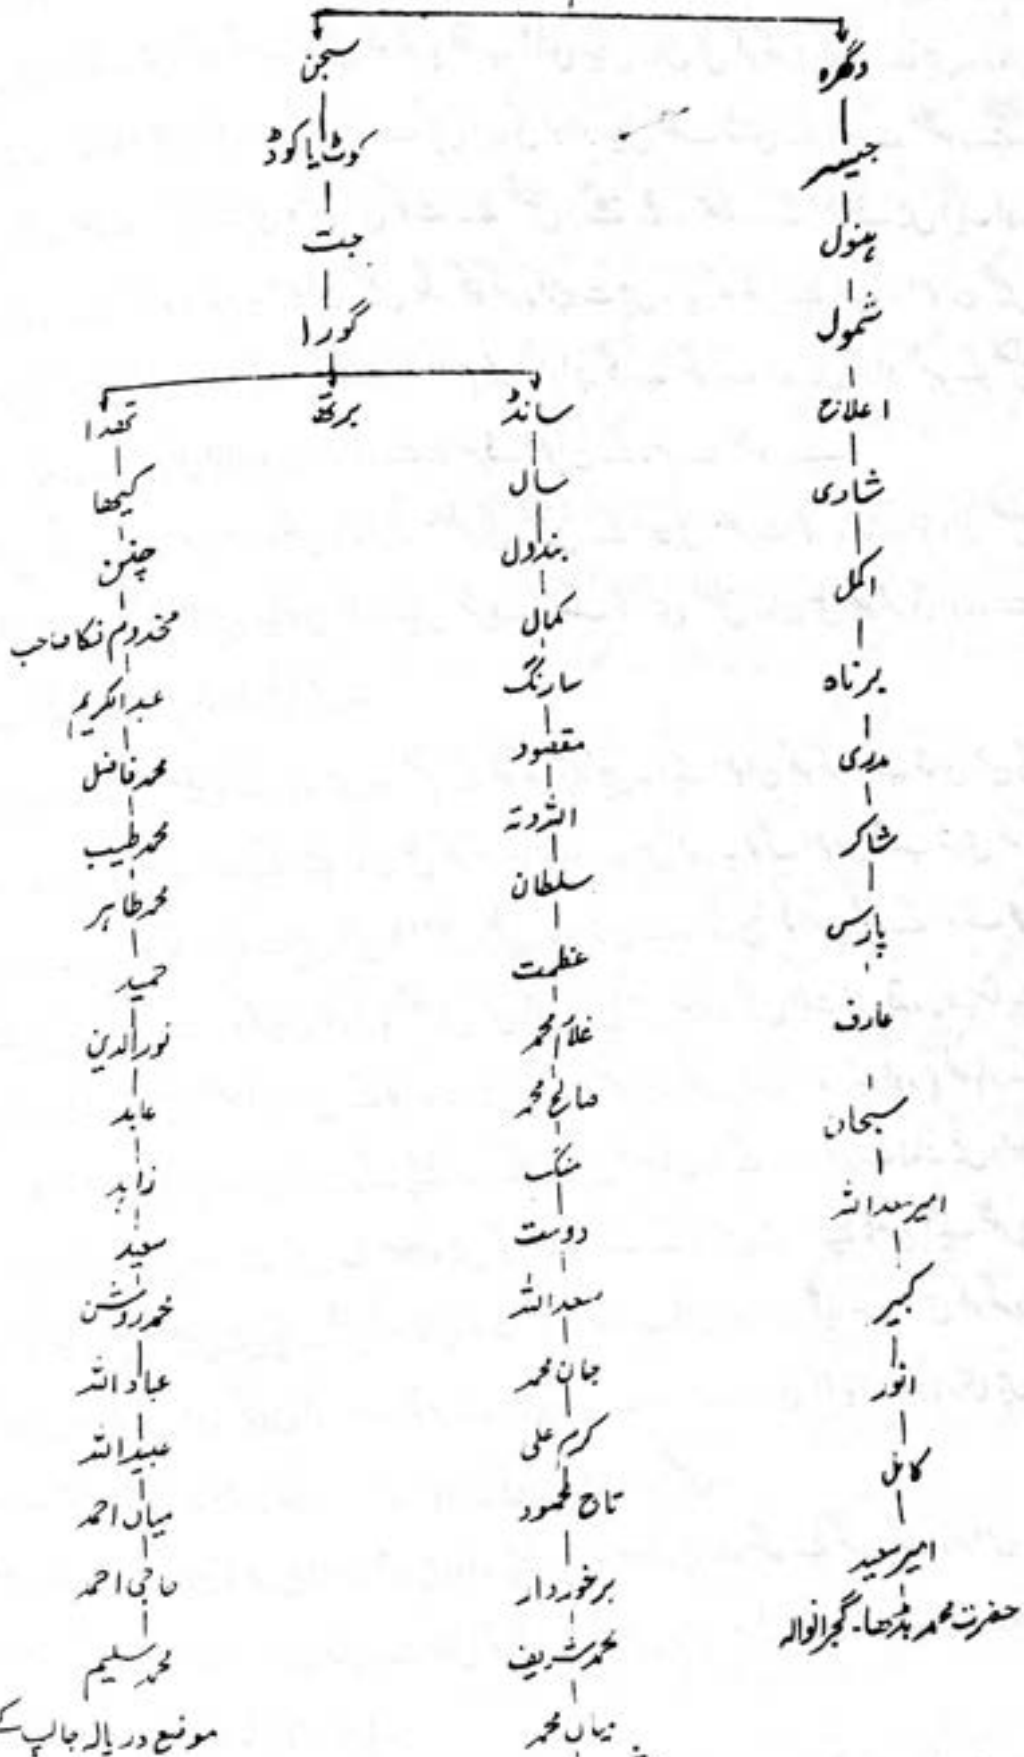 دگرہ
جیسر
ہنول
شمول
اعلاح
شادی
اکمل
برناہ
مدری
شاکر
پارس
عارف
سبحان
امیر سعد اللہ
کبیر
انور
کامل
امیر سعید
حضرت محمد بڈھا۔ گجرانوالہ
سجن
کوٹ یا کوڈ
جت
گورا
سانڈ
سال
بندول
کمال
سارنگ
مقصود
اللہ دتہ
سلطان
عظمت
غلام محمد
صالح محمد
دوست
سعد اللہ
جان محمد
کرم علی
تاج محمود
برخوردار
محمد شریف
میاں محمد
برتھ
تھدا
کیھا
چنن
مخدوم نکا صاحب
عبدالکریم
محمد فاضل
محمد طیب
محمد طاہر
حمید
نور الدین
عابد
زاہد
سعید
محمد روشن
عباد اللہ
عبید اللہ
میاں احمد
حاجی احمد
محمد سلیم
موضع دریالہ جالپ کے